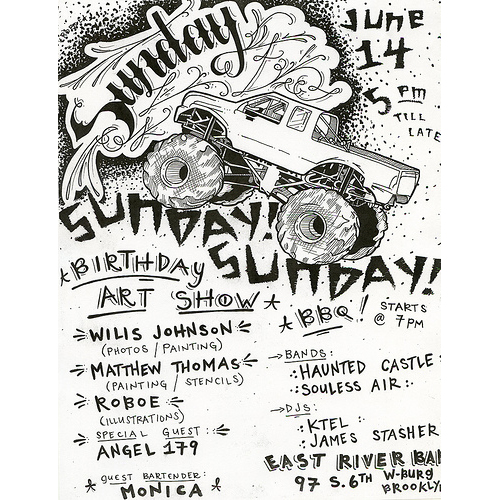 Sunday
JUNE
14
5 PM
TILL
LATE
SUNDAY!
SUNDAY!
BIRTHDAY
ART SHOW
WILIS JOHNSON
(PHOTOS / PAINTING)
MATTHEW THOMAS
(PAINTING / STENCILS)
ROBOE
(ILLUSTRATIONS)
SPECIAL GUEST:
ANGEL 179
GUEST BARTENDER:
MONICA
BBQ! STARTS
@ 7 PM
BANDS:
HAUNTED CASTLE
SOULESS AIR
DJS:
KTEL
JAMES STASHER
EAST RIVER BA
97 S. 6TH W-BURG
BROOKLY